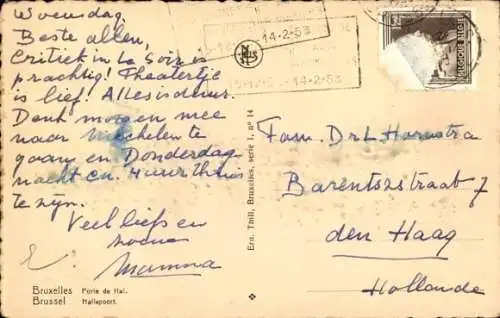 Woensdag,
Beste allen,
Critiek in Le Soir is
prachtig! Theatertje
is lief! Alles is duur.
Denk morgen mee
naar Mechelen te
gaan en Donderdag-
nacht en 4 uur thuis
te zyn.
Veel liefs en
zoenen
Mamma
14-2-53
14-2-53
BELGIQUE BELGIE
Ern. Thill, Bruxelles, série 1, nº 14
Fam. Dr L. Hornstra
Barentszstraat 7
den Haag
Hollande
Bruxelles Porte de Hal.
Brussel Hallepoort.